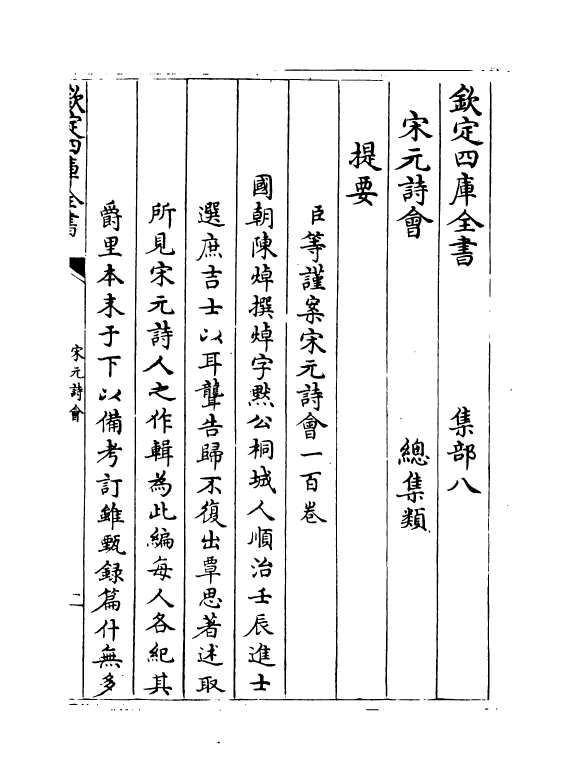 欽定四庫全書　集部八
宋元詩會　總集類
提要
臣等謹案宋元詩會一百巻
國朝陳焯撰焯字黙公桐城人順治壬辰進士
選庶吉士以耳聾告歸不復出覃思著述取
所見宋元詩人之作輯為此編每人各紀其
爵里本末于下以備考訂雖甄録篇什無多
欽定四庫全書
宋元詩會
二